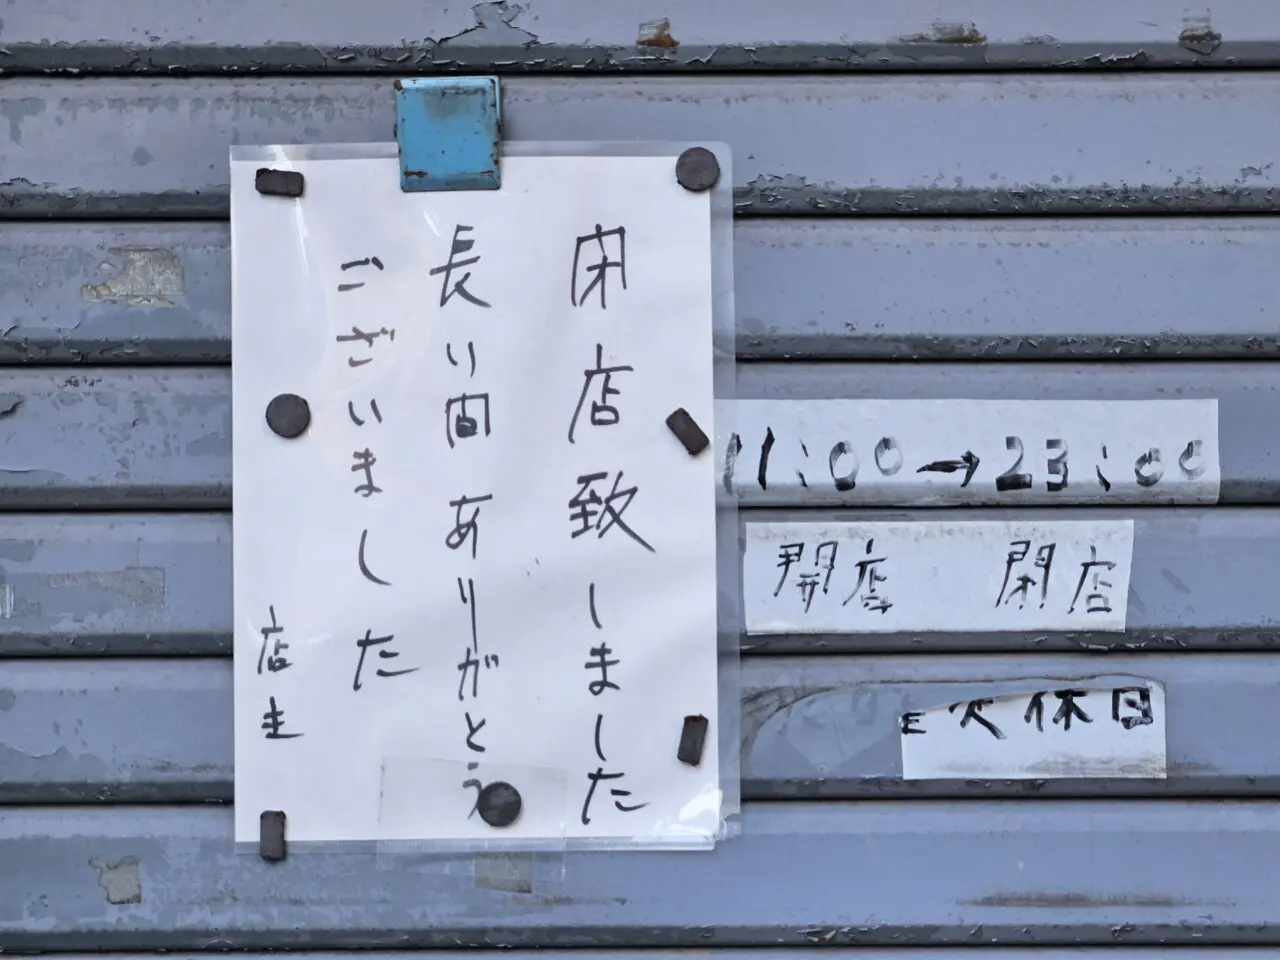 閉店致しました
長い間ありがとう
ございました
店主
11:00→23:00
開店 閉店
休日